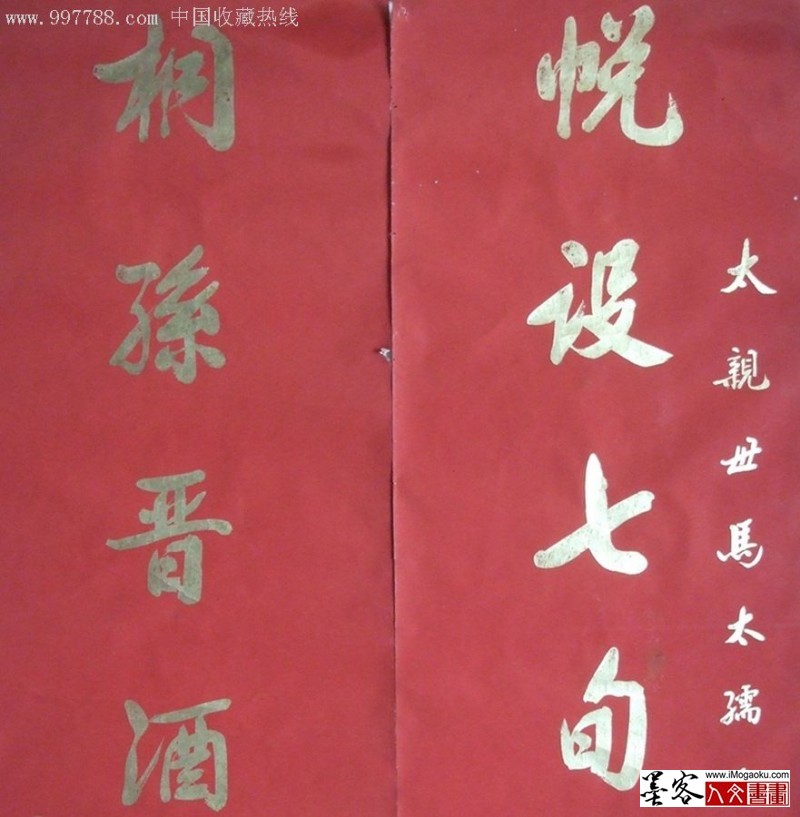 www.997788.com 中国收藏热线
太親世馬太孺
帨設七旬
桐孫晋酒
www.iMogaoku.com
墨客
人文書畫